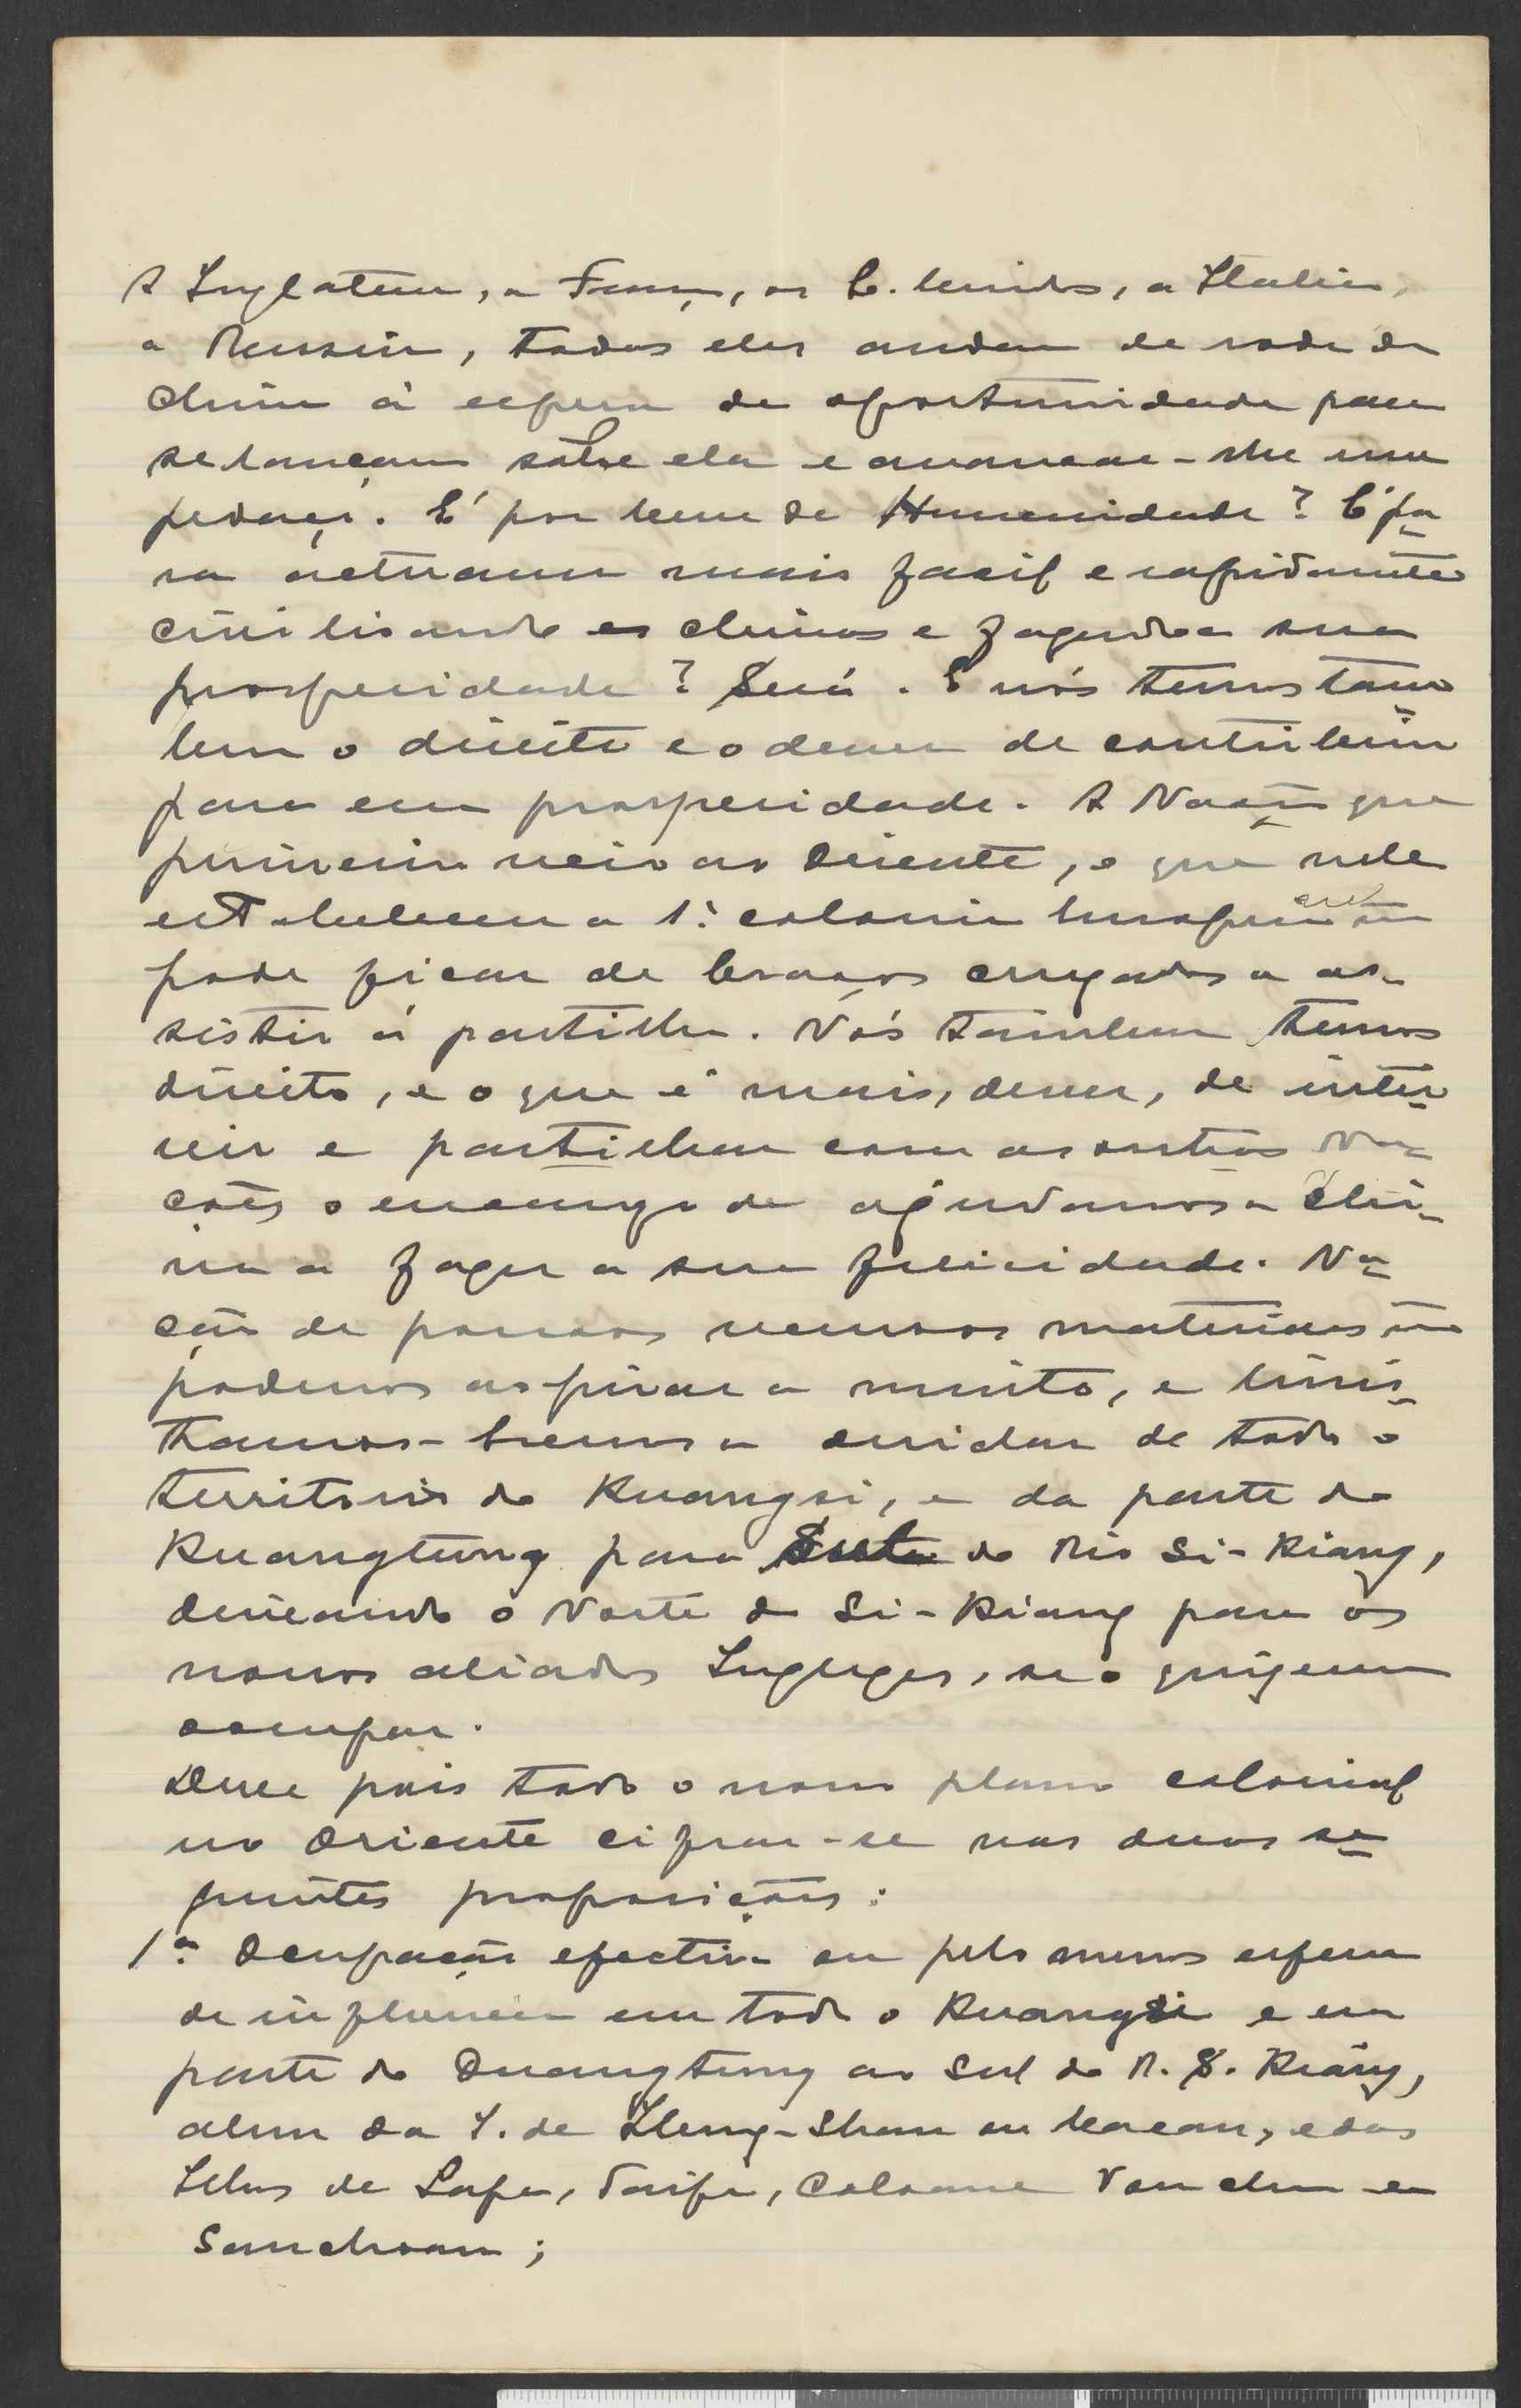 A Inglaterra, a França, os E. Unidos, a Italia,
a Russia, todos eles andam de roda da
China á espera de oportunidade para
se lançarem sôbre ela e arrancar-lhe um
pedaço. É por bem da Humanidade? É pa-
ra actuarem mais facil e rapidamente
civilisando os chinos e fazendo a sua
prosperidade? Será. E nós temos tam
bem o direito e o dever de contribuir
para essa prosperidade. A Nação que
primeiro veio ao Oriente, e que nele
estabeleceu a 1ª colonia Europeia não
pode ficar de braços cruzados a as-
sistir á partilha. Nós tambem temos
direito, e o que é mais, dever, de inter-
vir e partilhar com as outras Na-
ções o encargo de ajudarmos a Chi-
na a fazer a sua felicidade. Na-
ção de poucos recursos materiais não
podemos aspirar a muito, e limi-
tarmos-hemos a cuidar de todo o
territorio do Kuangsi, e da parte do
Kuangtung para do Rio Si-Kiang,
deixando o Norte do Si-Kiang para os
nossos aliados Inglezes, se o quizerem
ocupar.
Deve pois todo o nosso plano colonial
no Oriente cifrar-se nas duas se-
guintes proposições:
1ª Ocupação efectiva ou pelo menos esfera
de influencia em todo o Kuangsi e em
parte do Quangtung ao Sul do R. S. Kiang,
alem da I. de Heung-Shan ou Macau, e das
Ilhas de Lapa, Taipa, Coloane Van chu e
Sanchoam;